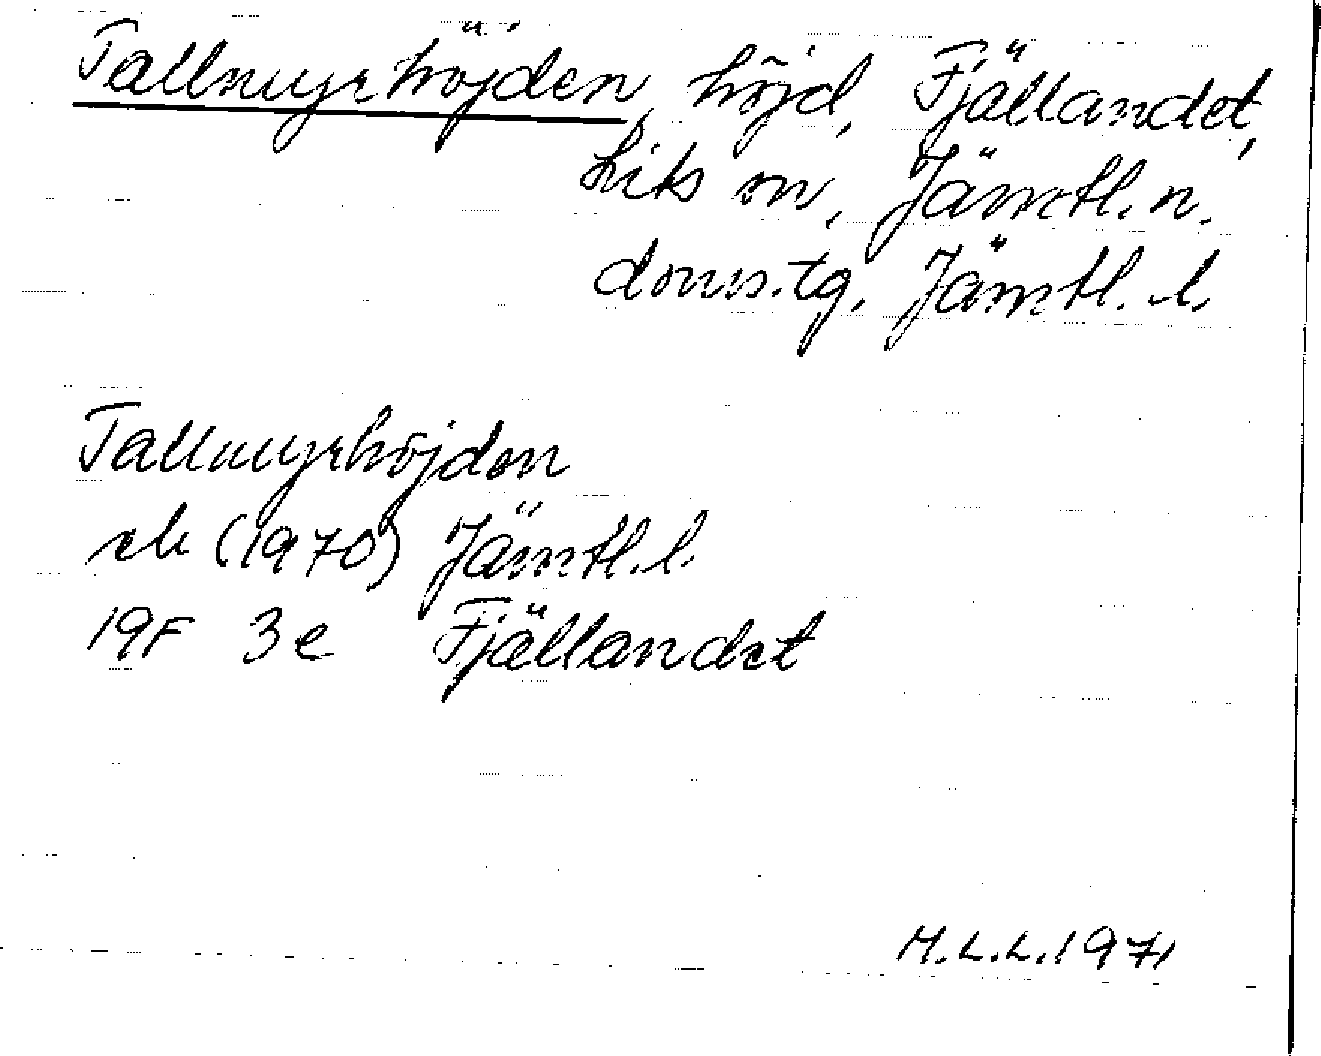 Tallmyrhöjden, höjd, Fjällandet,
Lits sn, Jämtl. n.
doms.tg, Jämtl. l.
Tallmyrhöjden
rk (1970) Jämtl. l.
19F 3e Fjällandet
M.L.L. 1971